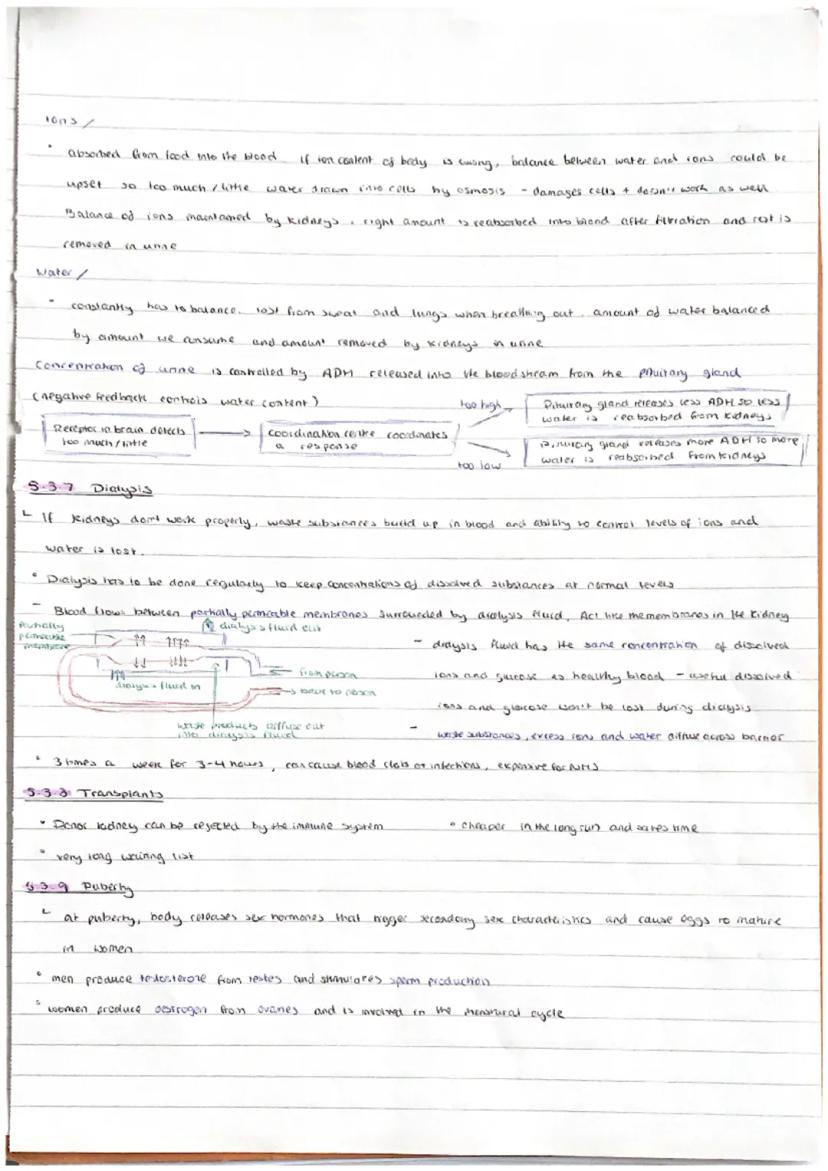 Ions /
• absorbed from food into the blood. If ion content of body is wrong, balance between water and ions could be
upset so too much / little water drawn into cells by osmosis - damages cells + doesn't work as well
Balance of ions maintained by kidneys, right amount is reabsorbed into blood after filtration and rest is
removed in urine
Water /
• constantly has to balance. lost from sweat and lungs when breathing out. amount of water balanced
by amount we consume and amount removed by kidneys in urine
Concentration of urine is controlled by ADH released into the bloodstream from the pituitary gland
(negative feedback controls water content)
Receptor in brain detects
too much / little
coordination centre coordinates
a response
too high
Pituitary gland releases less ADH so less
water is reabsorbed from kidneys
too low
Pituitary gland releases more ADH so more
water is reabsorbed from kidneys
5.3.7 Dialysis
If kidneys don't work properly, waste substances build up in blood and ability to control levels of ions and
water is lost.
• Dialysis has to be done regularly to keep concentrations of dissolved substances at normal levels
- Blood flows between partially permeable membranes surrounded by dialysis fluid. Act like membranes in the kidney
partially
permeable
membrane
dialysis fluid out
dialysis fluid in
from person
back to person
waste products diffuse out
into dialysis fluid
- dialysis fluid has the same concentration of dissolved
ions and glucose as healthy blood - useful dissolved
ions and glucose won't be lost during dialysis
- waste substances, excess ions and water diffuse across barrier
• 3 times a week for 3-4 hours, can cause blood clots or infections, expensive for NHS
5.3.8 Transplants
• Donor kidney can be rejected by the immune system
• cheaper in the long run and saves time
• very long waiting list
5.3.9 Puberty
at puberty, body releases sex hormones that trigger secondary sex characteristics and cause eggs to mature
in women
• men produce testosterone from testes and stimulates sperm production
• women produce oestrogen from ovaries and is involved in the menstrual cycle